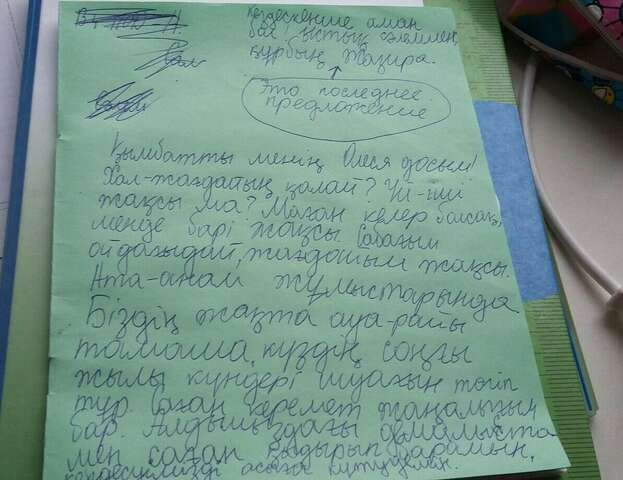 Кездескенше аман
бол! ыстық сәлеммен,
құрбың Жазира.
Это последнее
предложение
Қымбатты менің Олеся досым!
Хал-жағдайың қалай? Үй-іші
жақсы ма? Маған келер болсақ,
менде бәрі жақсы. Сабағым
ойдағыдай, жағдайым жақсы.
Ата-анам жұмыстарында
Біздің жақта ауа-райы
тамаша, күздің соңғы
жылы күндері шуағын төгіп
тұр. Саған керемет жаңалығым
бар. Алдымыздағы демалыста
мен саған қыдырып барамын.
кездесуімізді асыға күтудемін.